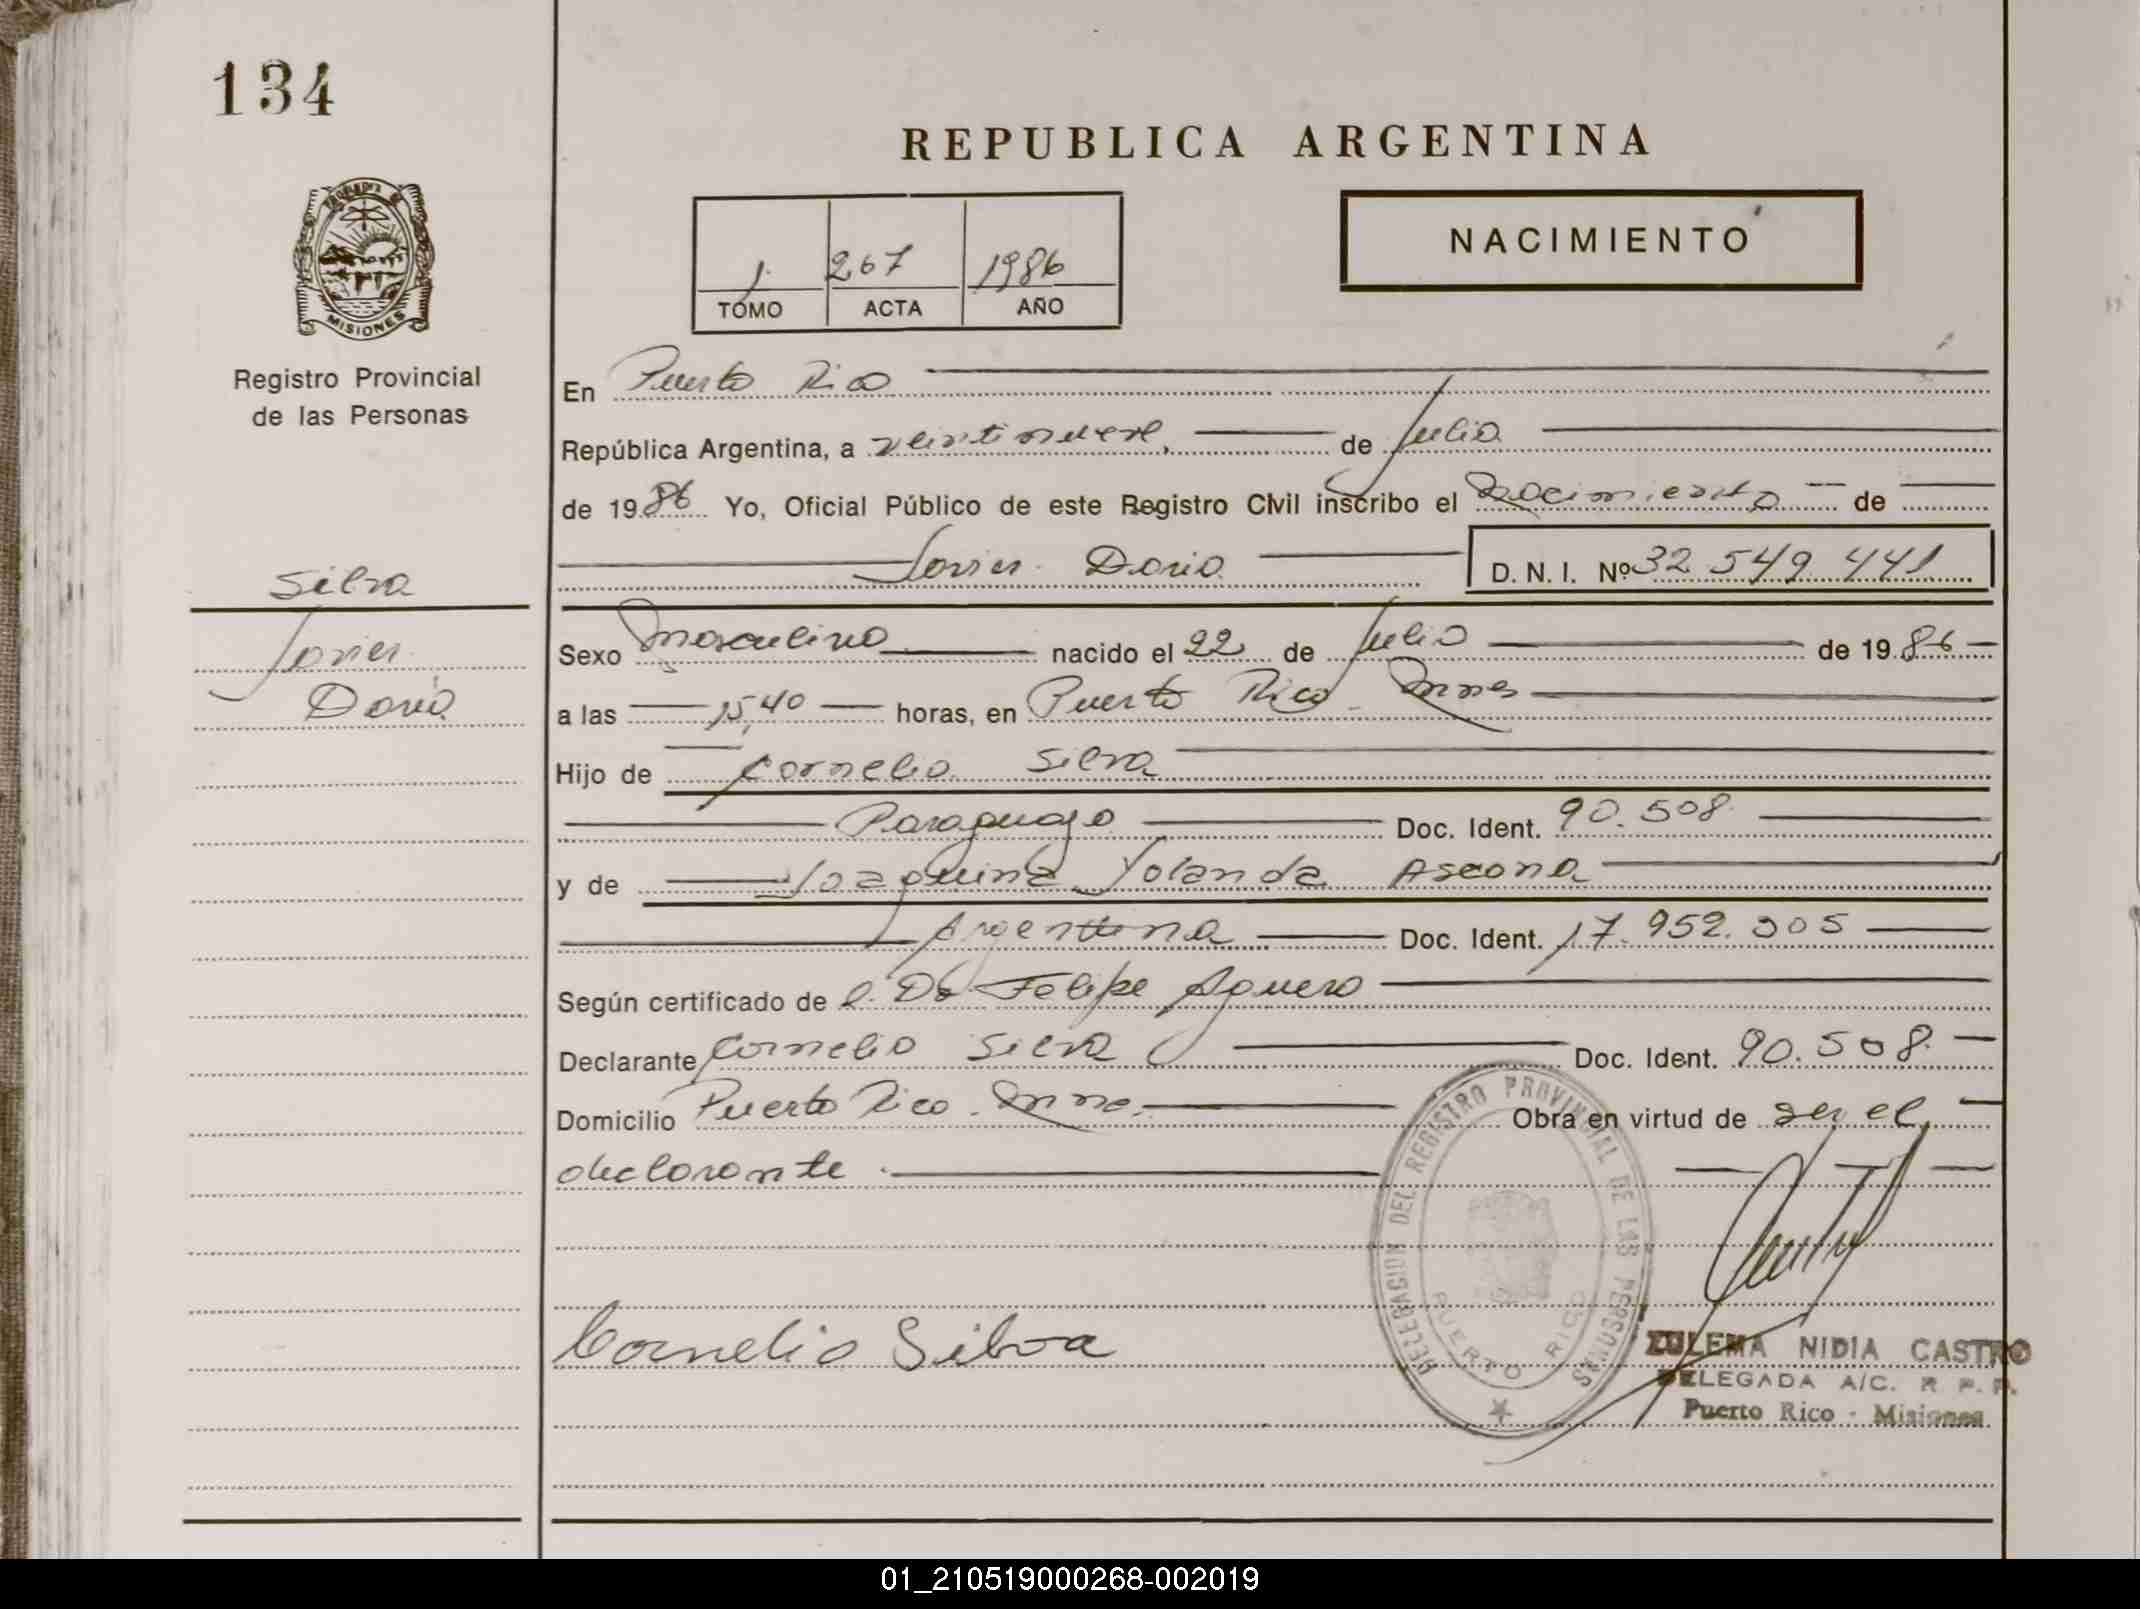 134
REPUBLICA ARGENTINA
MISIONES
Registro Provincial
de las Personas
1 267 1986
TOMO ACTA AÑO
NACIMIENTO
En Puerto Rico
República Argentina, a veintinueve, de Julio
de 1986 Yo, Oficial Público de este Registro Civil inscribo el Nacimiento de
Javier Dario D. N. I. Nº 32 549 441
Silva
Javier
Dario
Sexo Masculino nacido el 22 de Julio de 1986
a las 15,40 horas, en Puerto Rico Mnes
Hijo de Cornelio Silva
Paraguayo Doc. Ident. 90.508
y de Joaquina Yolanda Ascona
Argentina Doc. Ident. 17.952.305
Según certificado de Dr Felipe Aguero
Declarante Cornelio Silva Doc. Ident. 90.508
Domicilio Puerto Rico. Mnes. Obra en virtud de ser el
declarante.
DELEGACION DEL REGISTRO PROVINCIAL DE LAS PERSONAS
PUERTO RICO
Cornelio Silva
ZULEMA NIDIA CASTRO
DELEGADA A/C. R. P. P.
Puerto Rico - Misiones
01_210519000268-002019